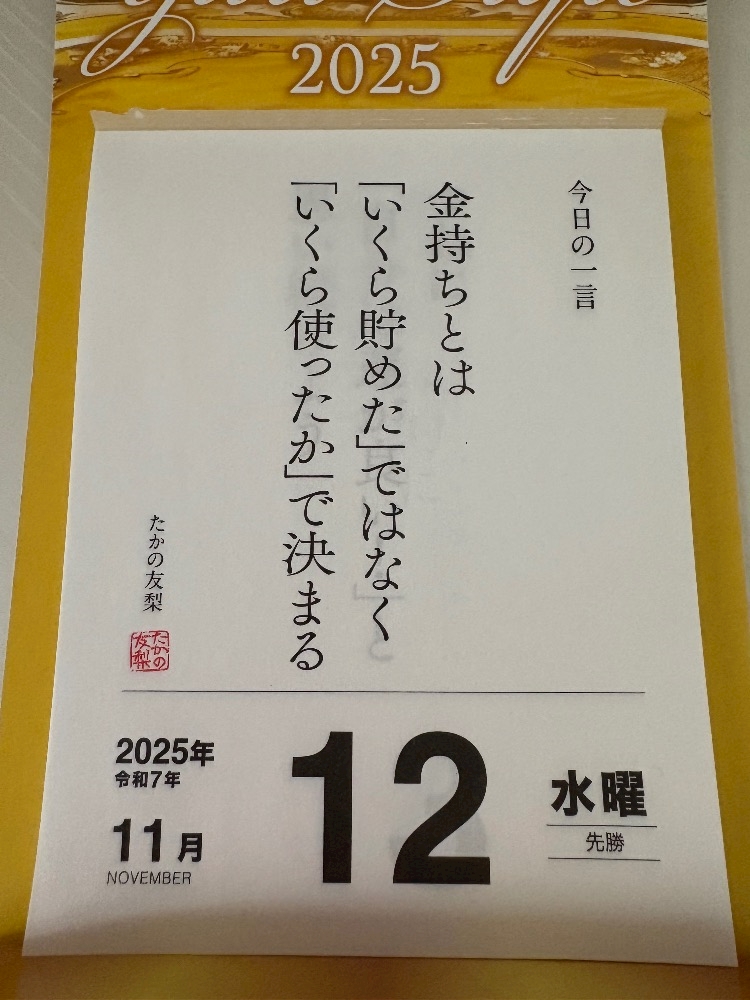 2025
今日の一言
金持ちとは
「いくら貯めた」ではなく
「いくら使ったか」で決まる
たかの友梨
たかの
友梨
2025年
令和7年
11月
NOVEMBER
12
水曜
先勝